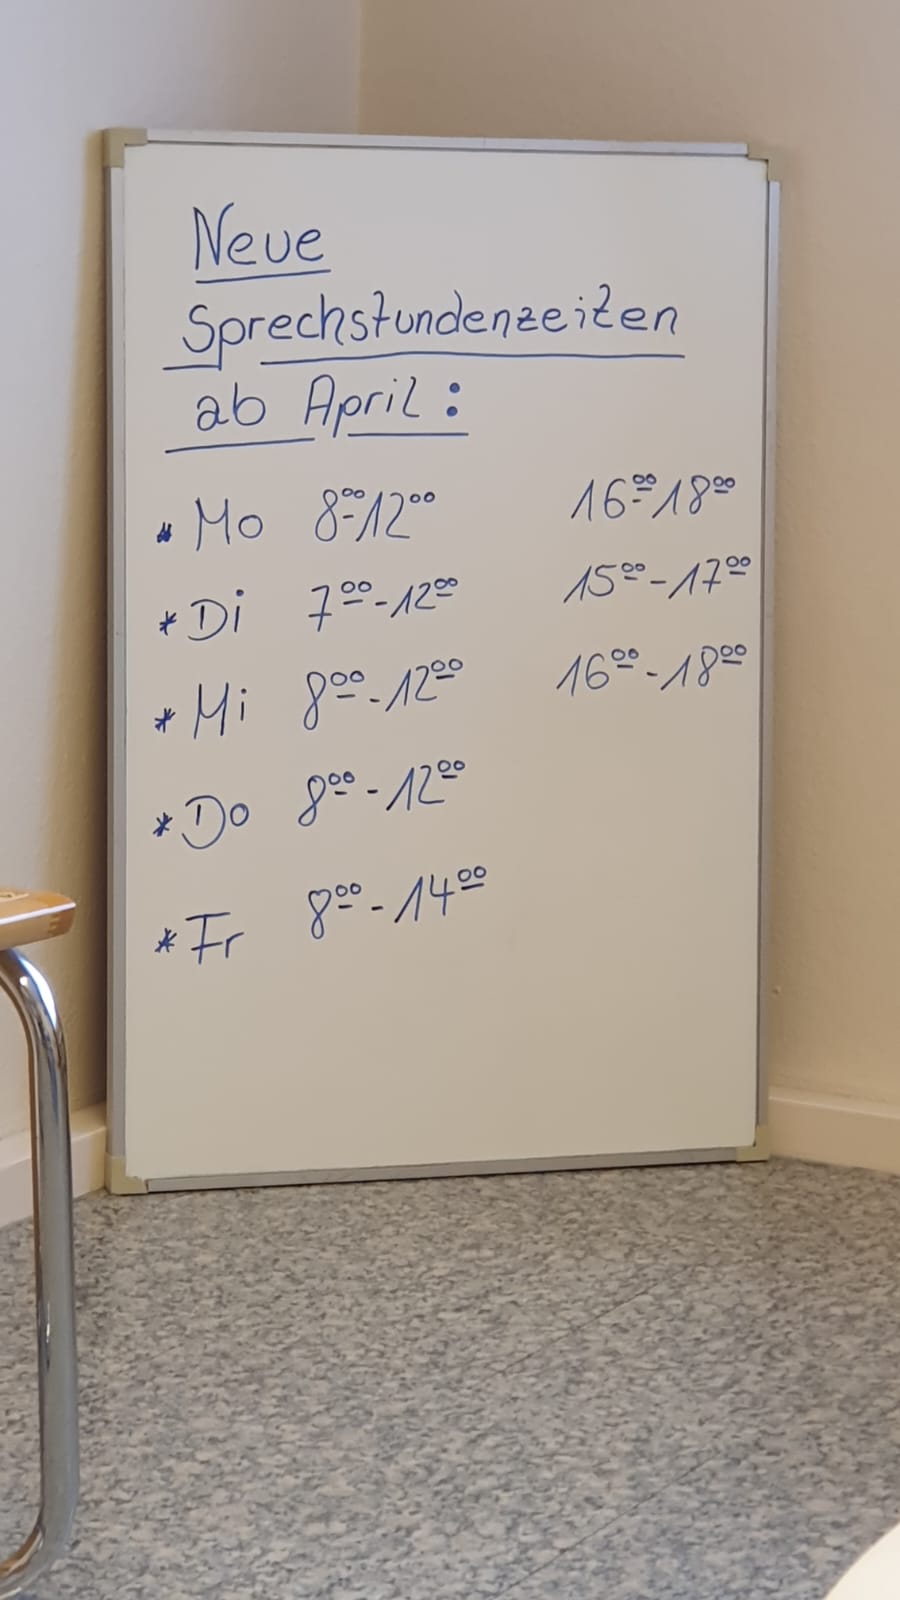 Neue
Sprechstundenzeiten
ab April:
* Mo 8⁰⁰-12⁰⁰ 16⁰⁰-18⁰⁰
* Di 7⁰⁰-12⁰⁰ 15⁰⁰-17⁰⁰
* Mi 8⁰⁰-12⁰⁰ 16⁰⁰-18⁰⁰
* Do 8⁰⁰-12⁰⁰
* Fr 8⁰⁰-14⁰⁰